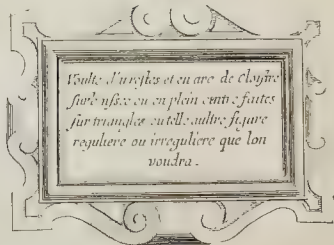 Voulte d'arestes et en arc de Cloistre
surbaissée ou en plein cintre faites
sur triangles ou telle aultre figure
reguliere ou irreguliere que lon
voudra.